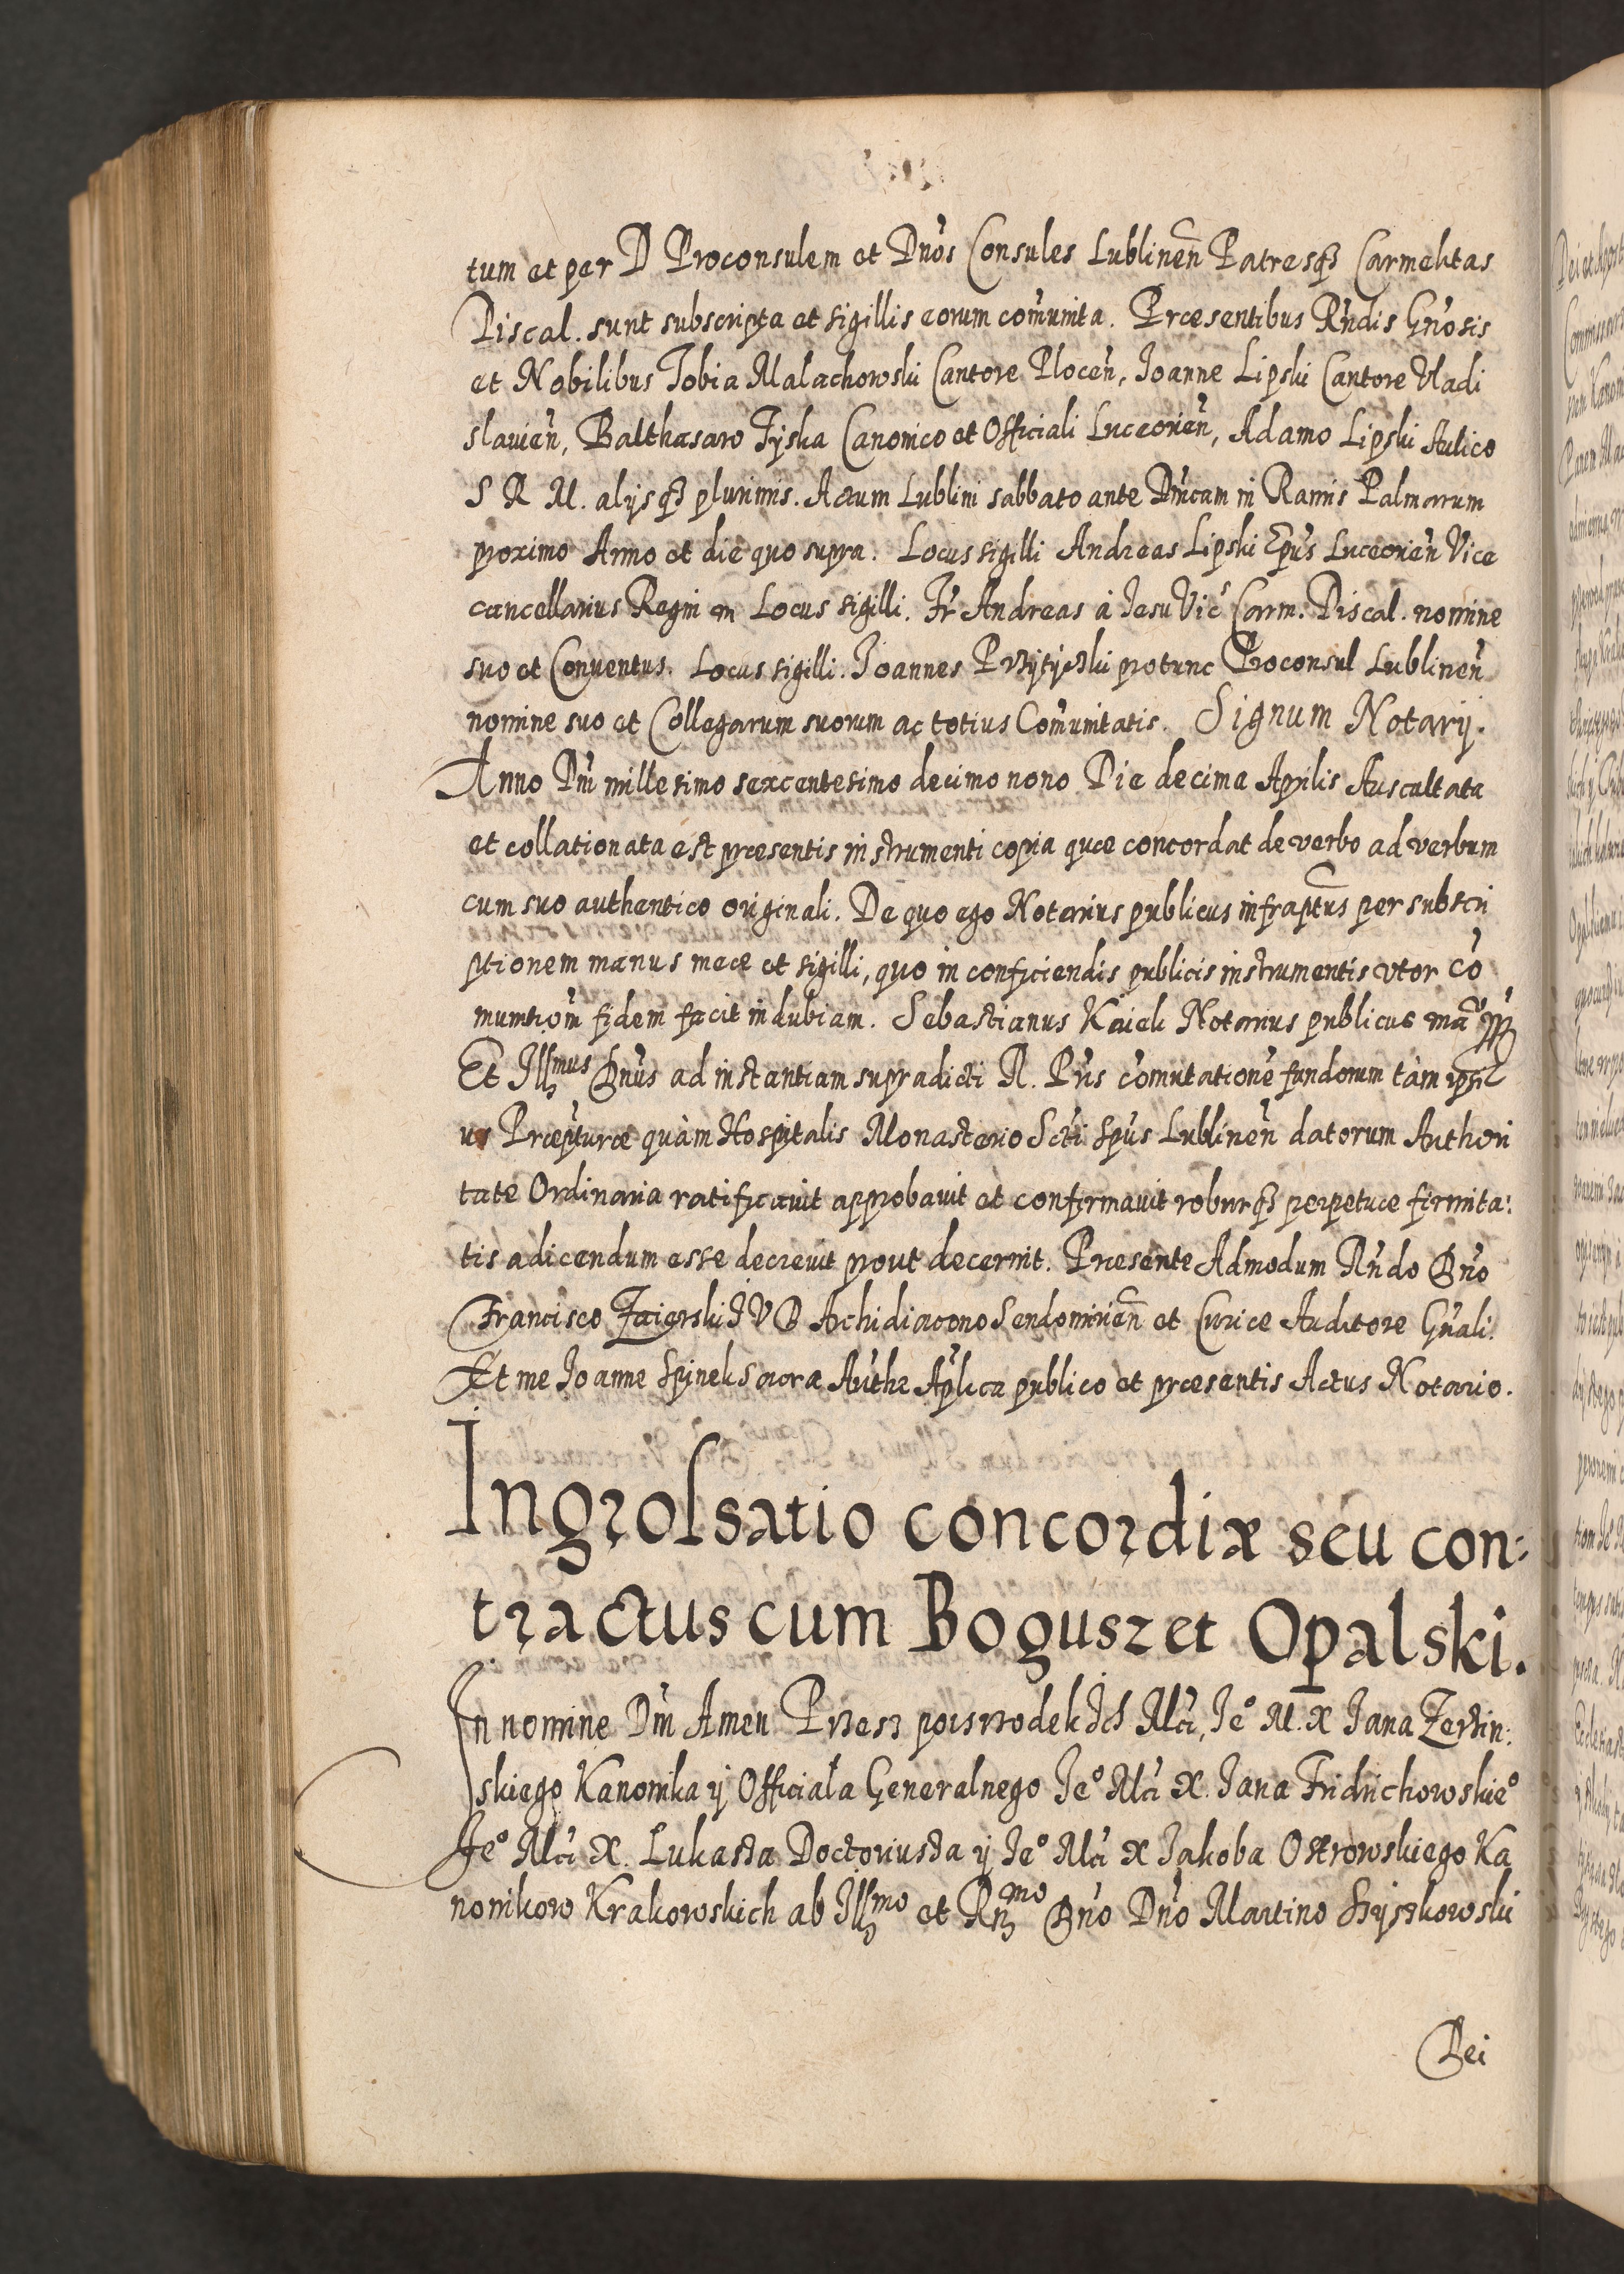 tum et per D Proconsulem et Dnos Consules Lublinen Patresq3 Carmelitas
Discal. sunt subscripta et sigillis eorum comunita. Præsentibus Rndis Gnosis
et Nobilibus Tobia Malachowski Cantore Plocen, Joanne Lipski Cantore Vladi
slavien, Balthasaro Tyska Canonico et Officiali Luceorien, Adamo Lipski Aulico
S R M. alijsq3 plurimis. Actum Lublini sabbato ante Dnicam in Ramis Palmarum
proximo Anno et die quo supra. Locus sigilli Andreas Lipski Epus Luceorien Vice
cancellarius Regni m Locus sigilli. Fr Andreas à Jesu Vic Carm. Discal. nomine
suo et Conventus. Locus sigilli. Joannes protunc Proconsul Lublinen
nomine suo et Collegarum suorum ac totius Comunitatis. Signum Notarij.
Anno Dni millesimo sexcentesimo decimo nono Die decima Aprilis Auscultata
et collationata est præsentis instrumenti copia quæ concordat de verbo ad verbum
cum suo authentico originali. De quo ego Notarius publicus infraptus per subscri
ptionem manus meæ et sigilli, quo in conficiendis publicis instrumentis vtor co
munitiom fidem facit indubiam. Sebastianus Notarius publicus
Et Illmus Dnus ad instantiam supradicti R. Pris comutatione fundorum tàm ipsi
us Præpturæ quàm Hospitalis Monasterio Scti Spus Lublinen datorum Authori
tate Ordinaria ratificavit approbavit et confirmavit roburq3 perpetuæ firmita:
tis adiicendum esse decrevit prout decernit. Præsente Admodum Rndo Dno
Francisco JVD Archidiacono Sendomirien et Curiæ Auditore Gnali.
Et me Joanne Spinek Sacra Authe Aplica publico et præsentis Actus Notario.
Ingrossatio concordiæ seu con:
tractus cum Bogusz et Opalski.
In nomine Dni Amen Przesz poisrzodek Ich Mci, Je° M. X Jana
skiego Kanonika ÿ Officiała Generalnego Je° Mci X. Jana Fridrichowskie°
Je° Mci X. Lukasza Doctoriusza ÿ Je° Mci X Jakoba Ostrowskiego Ka
nonikow Krakowskich ab Illmo et Rmo Dno Dno Martino Szyszkowski
Dei